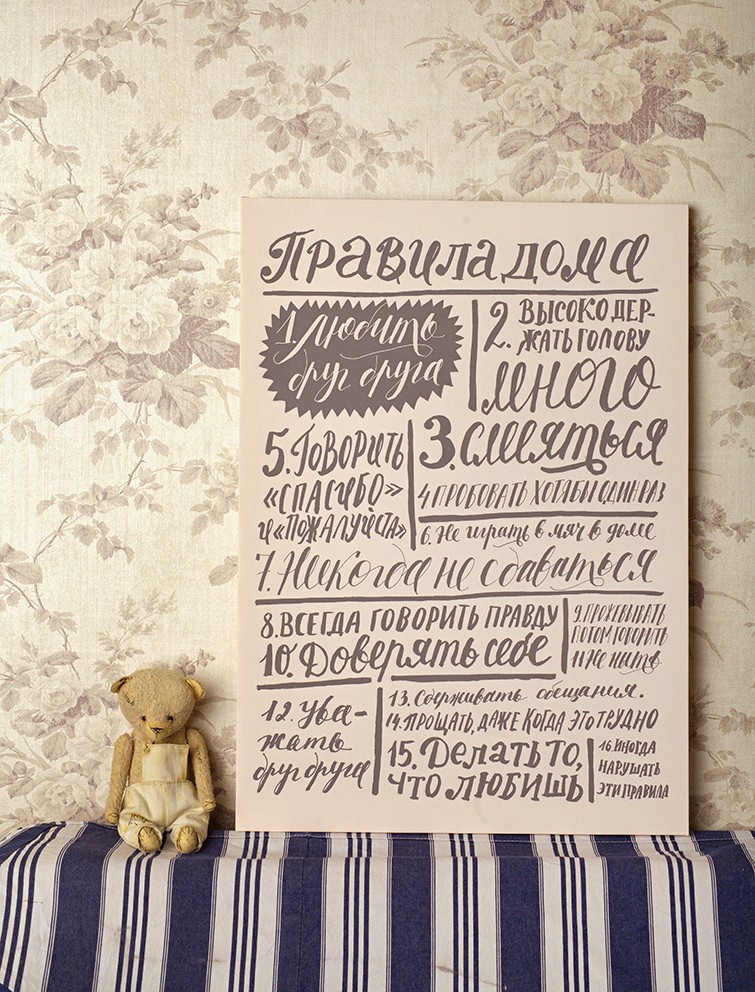 Правила дома
1. Любить
друг друга
2. ВЫСОКО ДЕР-
ЖАТЬ ГОЛОВУ
много
3. смеяться
4. ПРОБОВАТЬ ХОТЯ БЫ ОДИН РАЗ
5. ГОВОРИТЬ
«СПАСИБО»
и «ПОЖАЛУЙСТА»
6. Не играть в мяч в доме
7. Никогда не сдаваться
8. ВСЕГДА ГОВОРИТЬ ПРАВДУ
9. ПРОЖЕВЫВАТЬ
ПОТОМ ГОВОРИТЬ
10. Доверять себе
11 Не ныть
12. Ува-
жать
друг друга
13. Сдерживать обещания.
14. ПРОЩАТЬ, ДАЖЕ КОГДА ЭТО ТРУДНО
15. Делать то,
ЧТО ЛЮБИШЬ
16. ИНОГДА
НАРУШАТЬ
ЭТИ ПРАВИЛА